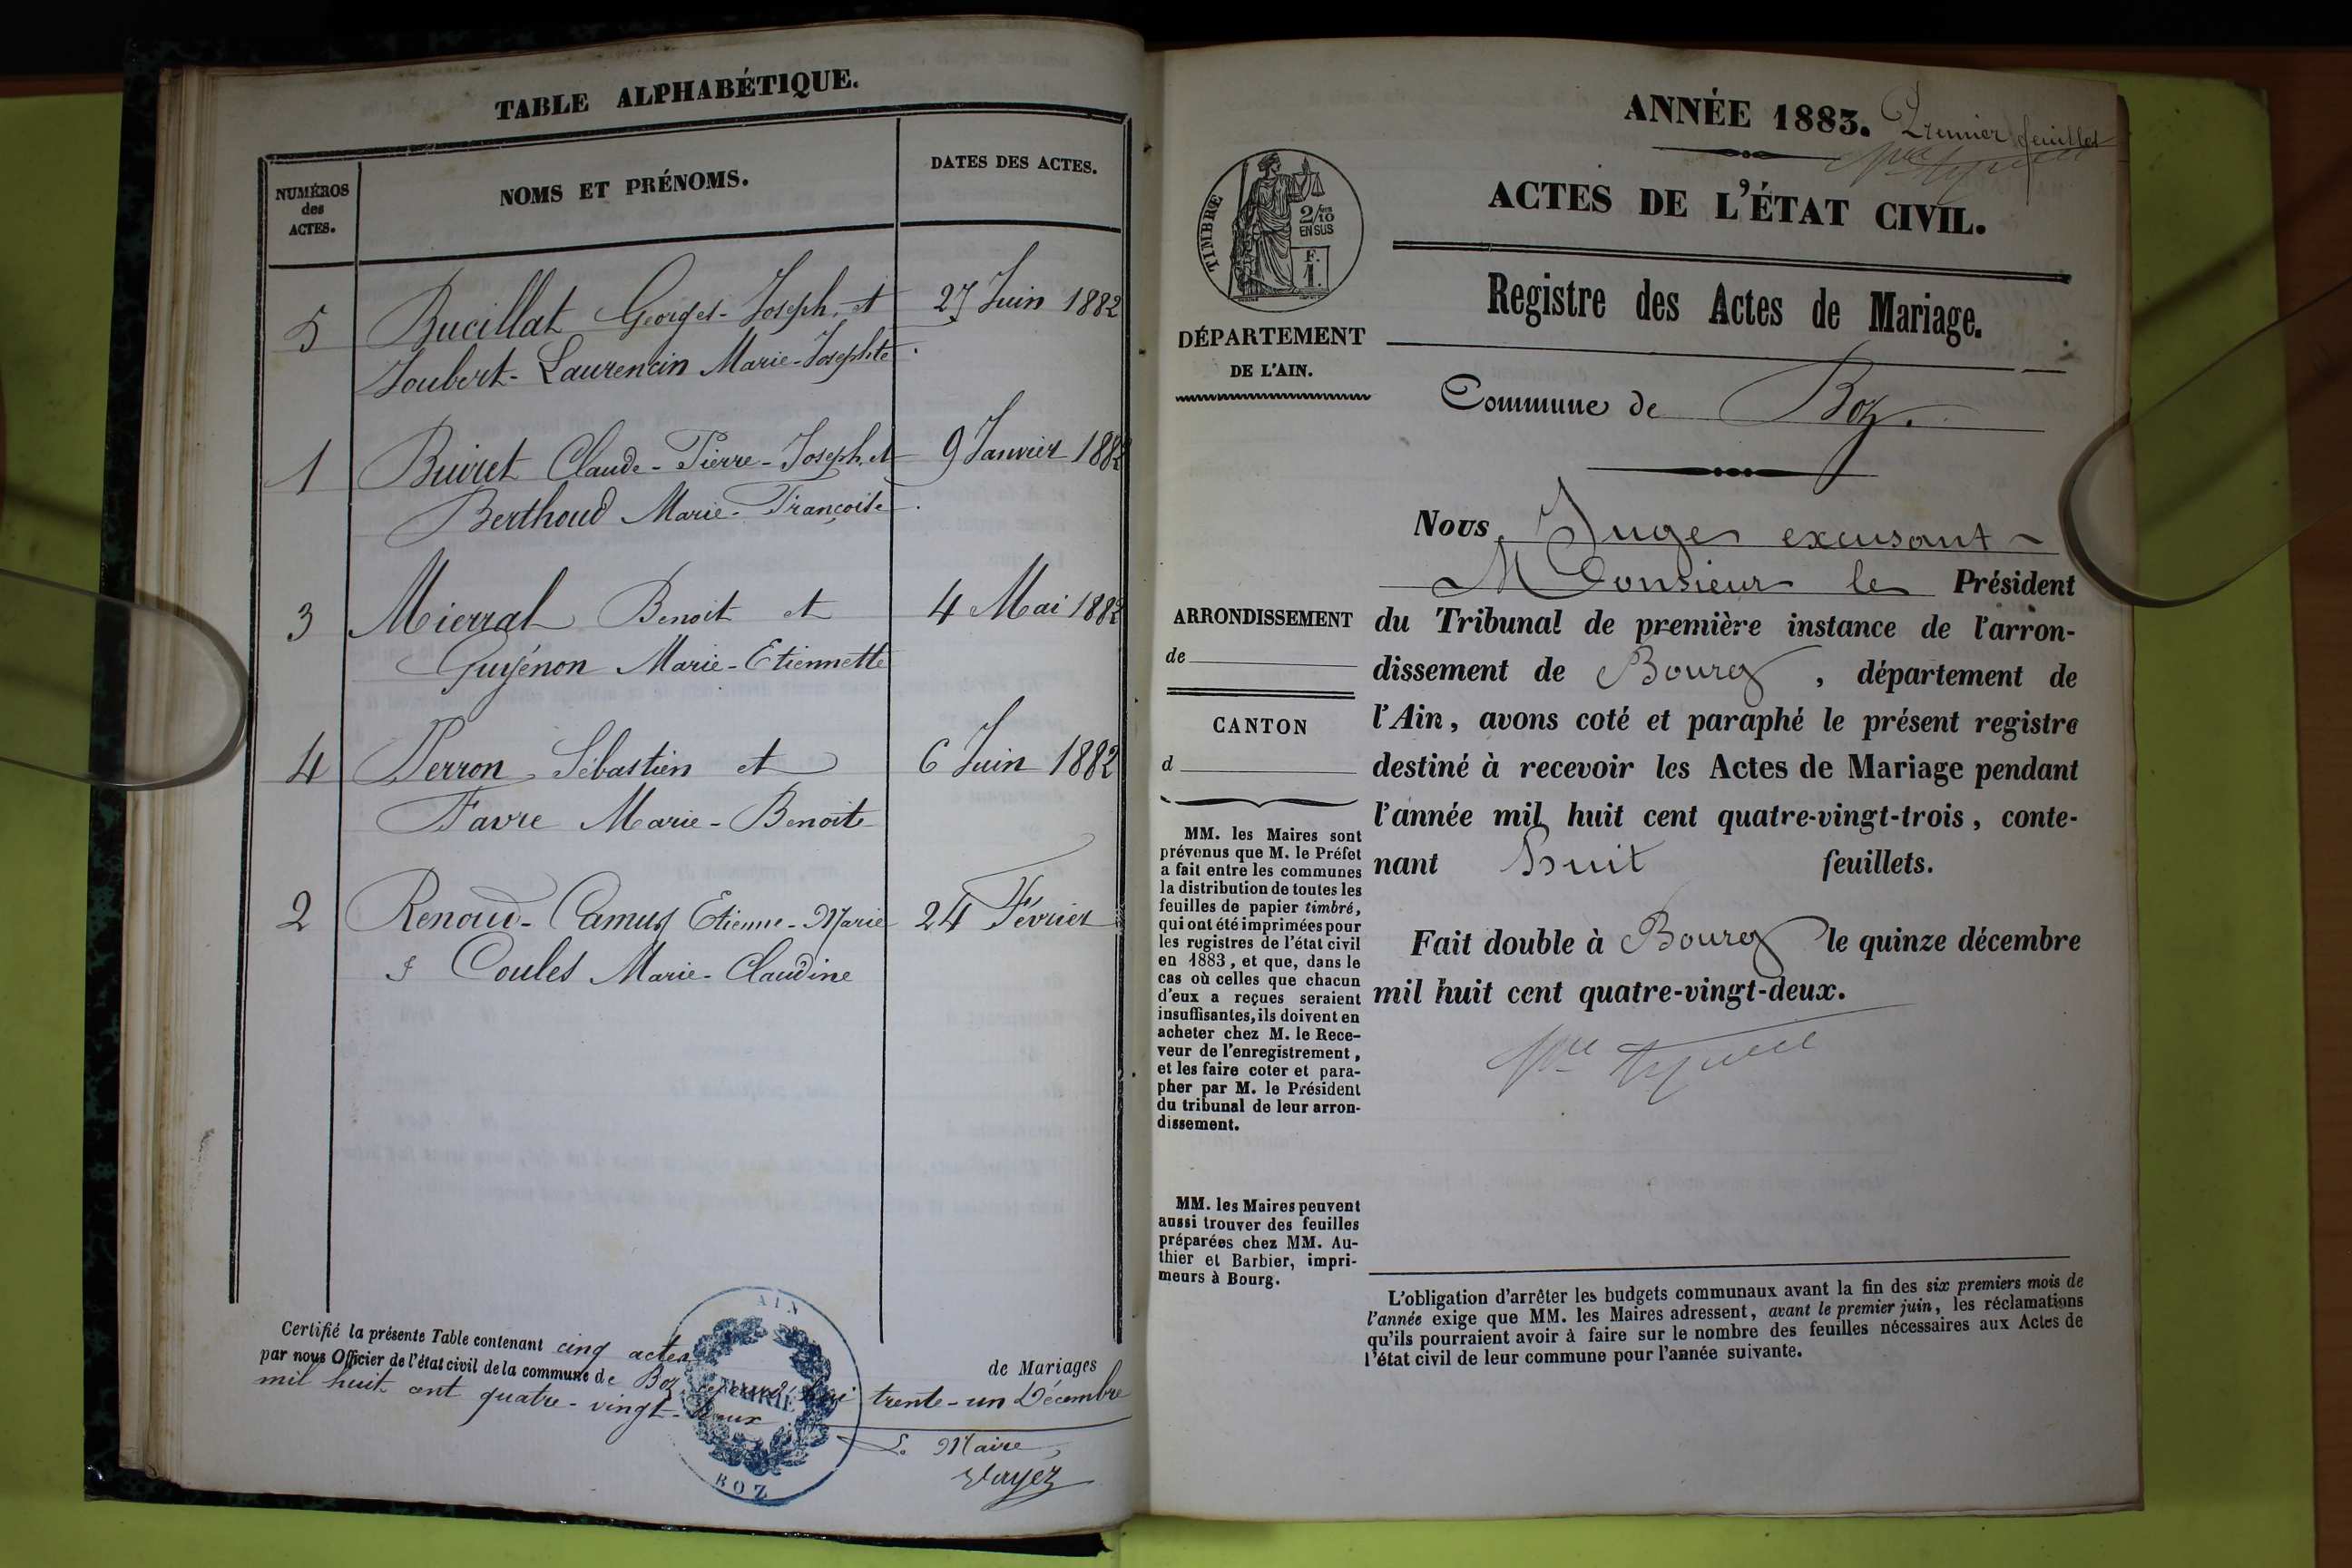 TABLE ALPHABÉTIQUE.
NUMÉROS
des
ACTES.
NOMS ET PRÉNOMS.
DATES DES ACTES.
5 Bucillat Georges-Joseph et 27 Juin 1882
Joubert-Laurencin Marie-Josephte
1 Buiret Claude-Pierre-Joseph et 9 Janvier 1882
Berthoud Marie-Françoise
3 Mierral Benoit et 4 Mai 1882
Guyénon Marie-Etiennette
4 Perron Sébastien et 6 Juin 1882
Favre Marie-Benoite
2 Renoud-Camus Etienne-Marie 24 Février
& Coulas Marie-Claudine
Certifié la présente Table contenant cinq actes de Mariages
par nous Officier de l'état civil de la commune de Boz trente-un Décembre
mil huit cent quatre-vingt-deux.
Le Maire,
AIN
MAIRIE
BOZ
ANNÉE 1883. Premier feuillet
ACTES DE L'ÉTAT CIVIL.
TIMBRE
2/10 EN SUS
F. 1.
Registre des Actes de Mariage.
DÉPARTEMENT
DE L'AIN.
Commune de Boz.
Nous, Juge excusant
Monsieur le Président
du Tribunal de première instance de l'arron-
dissement de Bourg, département de
l'Ain, avons coté et paraphé le présent registre
destiné à recevoir les Actes de Mariage pendant
l'année mil huit cent quatre-vingt-trois, conte-
nant huit feuillets.
Fait double à Bourg le quinze décembre
mil huit cent quatre-vingt-deux.
ARRONDISSEMENT
de
CANTON
d
MM. les Maires sont
prévenus que M. le Préfet
a fait entre les communes
la distribution de toutes les
feuilles de papier timbré,
qui ont été imprimées pour
les registres de l'état civil
en 1883, et que, dans le
cas où celles que chacun
d'eux a reçues seraient
insuffisantes, ils doivent en
acheter chez M. le Rece-
veur de l'enregistrement,
et les faire coter et para-
pher par M. le Président
du tribunal de leur arron-
dissement.
MM. les Maires peuvent
aussi trouver des feuilles
préparées chez MM. Au-
thier et Barbier, impri-
meurs à Bourg.
L'obligation d'arrêter les budgets communaux avant la fin des six premiers mois de
l'année exige que MM. les Maires adressent, avant le premier juin, les réclamations
qu'ils pourraient avoir à faire sur le nombre des feuilles nécessaires aux Actes de
l'état civil de leur commune pour l'année suivante.